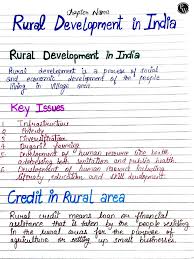 Chapter Name
Rural Development in India
Rural Development in India
Rural development is a process of social
and economic development of the people
living in village area
Key Issues
1 Infrastructure
2 Poverty
3 Diversification
4 Organic farming
5 Development of human resource like
sanitation and public health
6 Development of human resource including
literacy, education and skill development
Credit in Rural area
Rural credit means loan or financial
assistance that is taken by the people
in the rural area for the purpose of
agriculture or setting up small businesses.